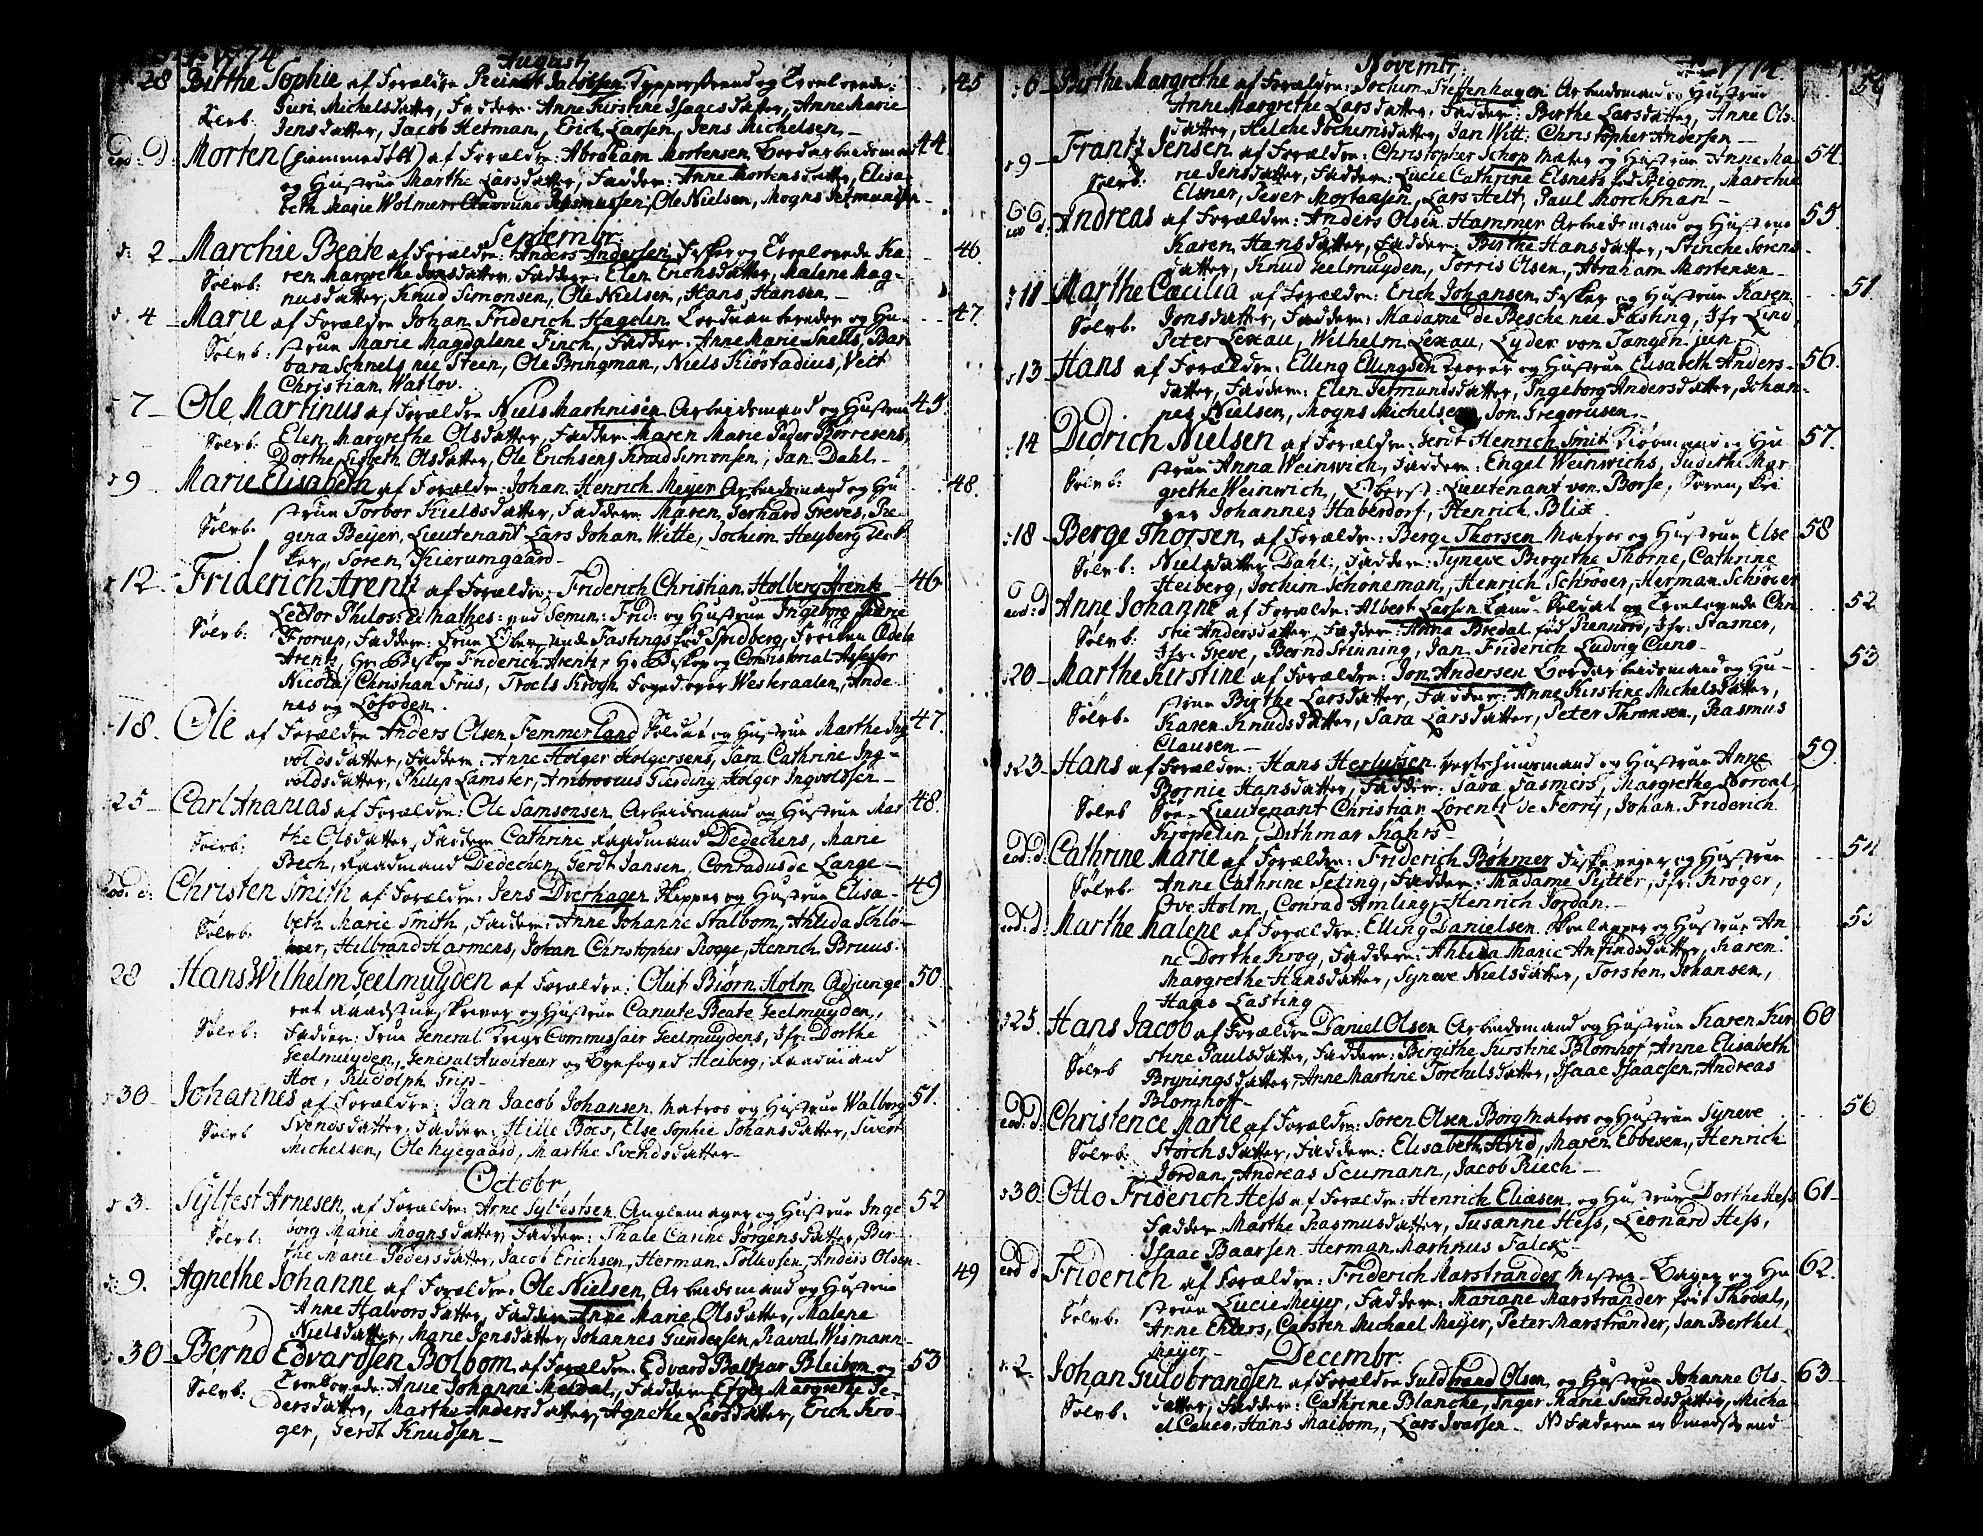 1774
August
28 Birthe Sophie af Forældre Jacobsen og Trolovede 45
Sølvb. Guri Michelsdatter, Faddere: Anne Kirstine Isaacsdatter, Anne Marie
Jensdatter, Jacob Herman, Erich Larsen, Jens Michelsen
eod: d: Morten (hiemmedøbt) af Forældre: Abraham Mortensen 44
og Hustrue Marthe Larsdatter, Faddere: Anne Mortensdatter, Elisa-
beth Marie Wolmer, Rasmussen, Ole Nielsen, Mogns
Septembr.
2 Marchie Beate af Forældre: Anders Andersen Fisker og Trolovede Ka- 46
Sølvb: ren Margrethe Jonsdatter, Faddere: Elen Erichsdatter, Malene Mag-
nusdatter, Knud Simonsen, Ole Nielsen, Hans Hansen
4 Marie af Forældre Johan Friderich Hagelin og Hu- 47.
Sølvb: strue Marie Magdalene Finch, Faddere: Anne Marie Snells, Bar-
bara Schnels née Steen, Ole Bringman, Niels Kiöstadius, Veit
Christian Watlov.
7 Ole Martinus af Forældre Niels Martinisen Arbeidsmand og Hustrue 45
Sølvb. Elen Margrethe Olsdatter, Faddere: Maren Marie Peder Børresens,
Dorthe Lisbeth Olsdatter, Ole Erichsen, Knud Simonsen, Jan Dahl
9 Marie Elisabeth af Forældre: Johan Henrich Meyer Arbeidsmand og Hu- 48.
Sølvb. strue Torbor Kieldsdatter, Faddere: Maren Gerhard Greves, Re-
gina Beyer, Lieutenant Lars Johan Witte, Jochum Heyberg
Søren Kierumgaard
12 Friderich Arentz af Forældre: Friderich Christian Holberg Arentz 46
Lector Philos: & Mathes: ved Semin: Frid: og Hustrue Ingeborg Marie
Sølvb: Frorup, Faddere: Frue Fastings fød Fridberg, Frøiken Adela
Arentz, Hr. Biskop Friderich Arentz, Hr. Biskop og Consistorial Assessor
Nicolai Christian Friis, Troels Krogh Foged over Westeraalen, Ande-
nes og Lofoden.
18. Ole af Forældre Anders Olsen Femmerland Soldat og Hustrue Marthe Ing- 47
voldsdatter, Faddere: Anne Holger Holgersens, Sara Cathrine Ing-
voldsdatter, Philip Lamster, Ambrosius Giesding, Holger Ingvoldsen
25 Carl Ananias af Forældre: Ole Samsonsen Arbeidsmand og Hustrue Mar- 48.
Sølvb: the Olsdatter, Faddere Cathrine Raadmand Dedechens, Marie
Bech, Raadmand Dedechen, Gerdt Jansen, Conradus de Lange
eod: d: Christen Smith af Forældre: Jens Dverhagen Skipper og Hustrue Elisa- 49
Sølvb. beth Marie Smith, Faddere: Anne Johanne Stalbom, Ahlida Schlö-
mer, Hilbrand Harmens, Johan Christopher Rogge, Henrich Bruus.
28 Hans Wilhelm Geelmuyden af Forældre: Oluf Biørn Holm Adjunge- 50
ret Raadstueskriver og Hustrue Canute Beate Geelmuyden,
Sølvb: Faddere: Frue General Krigs Commissair Geelmuydens, Jfr. Dorthe
Geelmuyden, General Auditeur og Byefoged Heiberg, Raadmand
Hoe, Rudolph Grip
30 Johannes af Forældre: Jan Jacob Johansen Matros og Hustrue Walborg 51.
Sølvb Svendsdatter, Faddere: Hille Boes, Else Sophie Johansdatter, Siwert
Michelsen, Ole Nyegaard, Marthe Svendsdatter
Octobr
3. Sylfest Arnesen af Forældre: Arne Sylfestsen Anglemager og Hustrue Inge- 52
Sølvb: borg Marie Mognsdatter, Faddere: Thale Carine Jørgensdatter, Bir-
the Marie Pedersdatter, Jacob Erichsen, Herman Tollevsen, Anders Olsen
9. Agnethe Johanne af Forældre: Ole Nielsen Arbeidsmand og Hustrue 49
Anne Halvorsdatter, Faddere Anne Marie Olsdatter, Malene
Nielsdatter, Marie Jensdatter, Johannes Gundersen, Raval Wismann
30 Bernd Edvardsen Bolbom af Forældre: Edvard Baltzar Bleibom og 53
Sølvb: Trolovede: Anne Johanne Meldal, Faddere Margrethe Pe-
dersdatter, Marthe Andersdatter, Agnethe Larsdatter, Erich Krö-
ger, Gerdt Knudsen
Novembr 1774
6 Birthe Margrethe af Forældre: Jochim Steffenhagen Arbeidsmand og Hustrue 50
Anne Margrethe Larsdatter, Faddere: Birthe Larsdatter, Anne Ols-
datter, Helche Jochimsdatter, Jan Witt, Christopher Andersen
9 Frantz Jensen af Forældre: Christopher Schop Mater og Hustrue Anne Ma- 54.
Sølvb. rie Jensdatter, Faddere: Lucie Cathrine Elsners fød Bigom, Marchie
Elsner, Peter Mortensen, Lars Helt, Paul Morchman
eod d: Andreas af Forældre: Anders Olsen Hammer Arbeidsmand og Hustrue 55.
Karen Hansdatter, Faddere: Birthe Hansdatter, Stinche Sørens-
datter, Knud Geelmuyden, Torris Olsen, Abraham Mortensen
11 Marthe Cæcilia af Forældre: Erich Johansen Fisker og Hustrue Karen 51
Sølvb. Jonsdatter, Faddere: Madame de Besche née Fasting, Jfr Lind,
Peter Lexau, Wilhelm Lexau, Lyder von Tangen jun.
13 Hans af Forældre: Elling Ellingsen og Hustrue Elisabeth Anders- 56.
datter, Faddere: Elen Germundsdatter, Ingeborg Andersdatter, Johan-
nes Nielsen, Mogns Michelsen, Jon Gregoriusen
14 Didrich Nielsen af Forældre: Gerdt Henrich Smit Kiøbmand og Hu- 57.
Sølvb: strue Anna Weinwich, Faddere: Engel Weinwichs, Judithe Mar-
grethe Weinwich, Oberst-Lieutenant von Borse, Søren
Johannes Haberdorf, Henrich Blix
18 Berge Thorsen af Forældre: Berge Thorsen Matros og Hustrue Else 58
Sølvb: Nielsdatter Dahl, Faddere: Syneve Birgithe Thorne, Cathrine
Heiberg, Jochim Schöneman, Henrich Schröder, Herman Schröder
eod: d Anne Johanne af Forældre: Albert Larsen Land-Soldat og Trolovede Chri- 52
Sølvb: stie Andersdatter, Faddere: Anna Bredal fød Rennord, Jfr. Stamer,
Jfr. Greve, Bernd Stenning, Jan Friderich Ludvig Cuno
20 Marthe Kirstine af Forældre: Jon Andersen og Hu- 53
Sølvb. strue Birthe Larsdatter, Faddere: Anne Kirstine Michelsdatter,
Karen Knudsdatter, Sara Larsdatter, Peter Thronsen, Rasmus
Clausen
23 Hans af Forældre: Hans Herlufsen Vertshuusmand og Hustrue Anne 59
Bornie Hansdatter, Faddere: Sara Fasmers, Margrethe
Sølvb Søe-Lieutenant Christian Lorentz de Ferry, Johan Friderich
Kröpelin, Dithmar Kahrs
eod: d: Cathrine Marie af Forældre: Friderich Böhmer Fiskeveyer og Hustrue 54
Sølvb. Anne Cathrine Seting, Faddere: Madame Rütter, Jfr: Kröger,
Ove Holm, Conrad Amling, Henrich Jordan
eod: d: Marthe Malene af Forældre: Elling Danielsen Skoelapper og Hustrue An- 55
ne Dorthe Krog, Faddere: Ahlida Marie Anfindsdatter, Karen
Margrethe Hansdatter, Syneve Nielsdatter, Torsten Johansen,
Hans Lasting
25. Hans Jacob af Forældre Daniel Olsen Arbeidsmand og Hustrue Karen Kir- 60
Sølvb stine Paulsdatter, Faddere: Birgithe Kirstine Blomhof, Anne Elisabeth
Bryningsdatter, Anne Martine Torchilsdatter, Isaac Isaacsen, Andreas
Blomhoff
eod: d: Christence Marie af Forældre: Søren Olsen Borg Matros og Hustrue Syneve 56
Sølvb: Størchsdatter, Faddere: Elisabeth Hvid, Maren Ebbesen, Henrich
Jordan, Andreas Scumann, Jacob Riech
30 Otto Friderich Hess af Forældre: Henrich Eliæsen og Hustrue Dorthe Hess 61
Faddere Marthe Rasmusdatter, Susanne Hess, Leonard Hess,
Isaac Baarsen, Herman Martinus Falck
eod d Friderich af Forældre: Friderich Marstrander Mester-Bager og Hu- 62.
Sølvb. strue Lucie Meyer, Faddere: Mariane Marstrander født Thodal,
Anne Ehlers, Carsten Michael Meyer, Peter Marstrander, Jan Berthel
Meyer
Decembr.
2 Johan Guldbrandsen af Forældre Guldbrand Olsen og Hustrue Johanne Ols- 63
Sølvb. datter, Faddere: Cathrine Blanche, Inger Marie Svendsdatter, Micha-
el Caves, Hans Maibom, Lars Ivarsen NB Faderen er